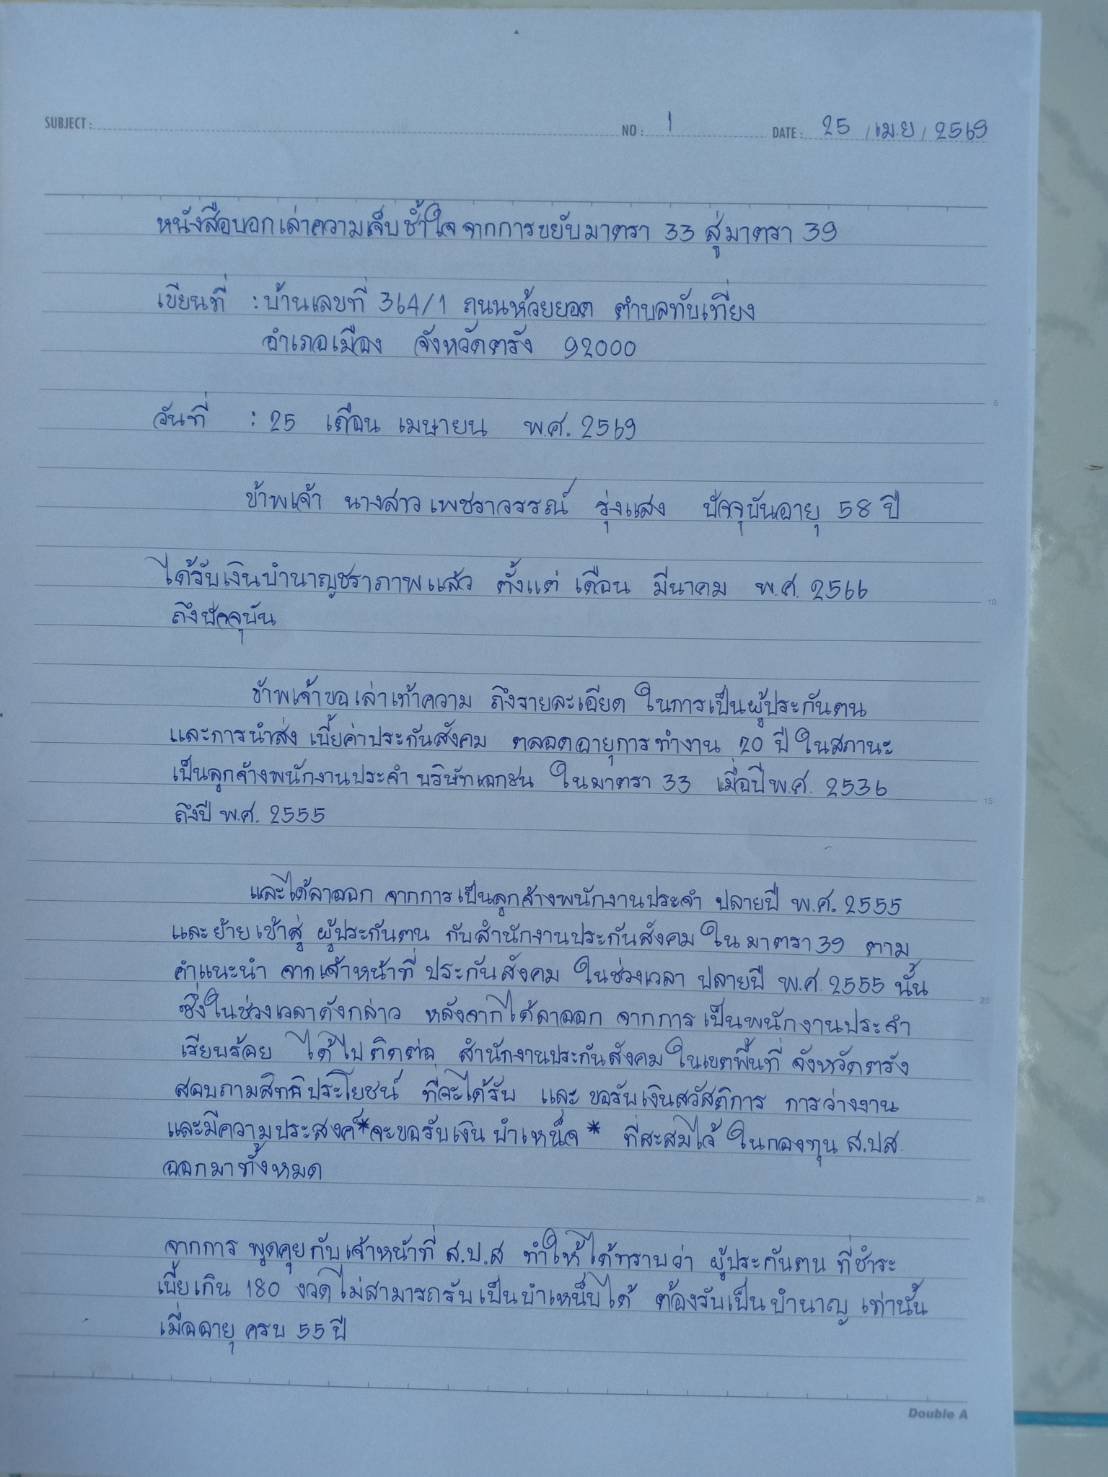 SUBJECT: NO: 1 DATE: 25 / เม.ย / 2569
หนังสือบอกเล่าความเจ็บช้ำใจ จากการขยับมาตรา 33 สู่มาตรา 39
เขียนที่ : บ้านเลขที่ 364/1 ถนนห้วยยอด ตำบลทับเที่ยง
อำเภอเมือง จังหวัดตรัง 92000
วันที่ : 25 เดือน เมษายน พ.ศ. 2569
ข้าพเจ้า นางสาวเพชราวรรณ์ รุ่งแสง ปัจจุบันอายุ 58 ปี
ได้รับเงินบำนาญชราภาพแล้ว ตั้งแต่ เดือน มีนาคม พ.ศ. 2566
ถึงปัจจุบัน
ข้าพเจ้าขอเล่าเท้าความ ถึงรายละเอียด ในการเป็นผู้ประกันตน
และการนำส่ง เบี้ยค่าประกันสังคม ตลอดอายุการทำงาน 20 ปี ในสภานะ
เป็นลูกจ้างพนักงานประจำ บริษัทเอกชน ในมาตรา 33 เมื่อปี พ.ศ. 2536
ถึงปี พ.ศ. 2555
และได้ลาออก จากการเป็นลูกจ้างพนักงานประจำ ปลายปี พ.ศ. 2555
และย้ายเข้าสู่ ผู้ประกันตน กับสำนักงานประกันสังคม ใน มาตรา 39 ตาม
คำแนะนำ จากเจ้าหน้าที่ ประกันสังคม ในช่วงเวลา ปลายปี พ.ศ. 2555 นั้น
ซึ่งในช่วงเวลาดังกล่าว หลังจากได้ลาออก จากการ เป็นพนักงานประจำ
เรียบร้อย ได้ไปติดต่อ สำนักงานประกันสังคม ในเขตพื้นที่ จังหวัดตรัง
สอบถามสิทธิประโยชน์ ที่จะได้รับ และ ขอรับเงินสวัสดิการ การว่างงาน
และมีความประสงค์*จะขอรับเงิน บำเหน็จ* ที่สะสมไว้ ในกองทุน ส.ปส.
ออกมาทั้งหมด
จากการ พูดคุยกับเจ้าหน้าที่ ส.ป.ส ทำให้ได้ทราบว่า ผู้ประกันตน ที่ชำระ
เบี้ยเกิน 180 งวดไม่สามารถรับเป็นบำเหน็บได้ ต้องรับเป็นบำนาญ เท่านั้น
เมื่ออายุ ครบ 55 ปี
Double A